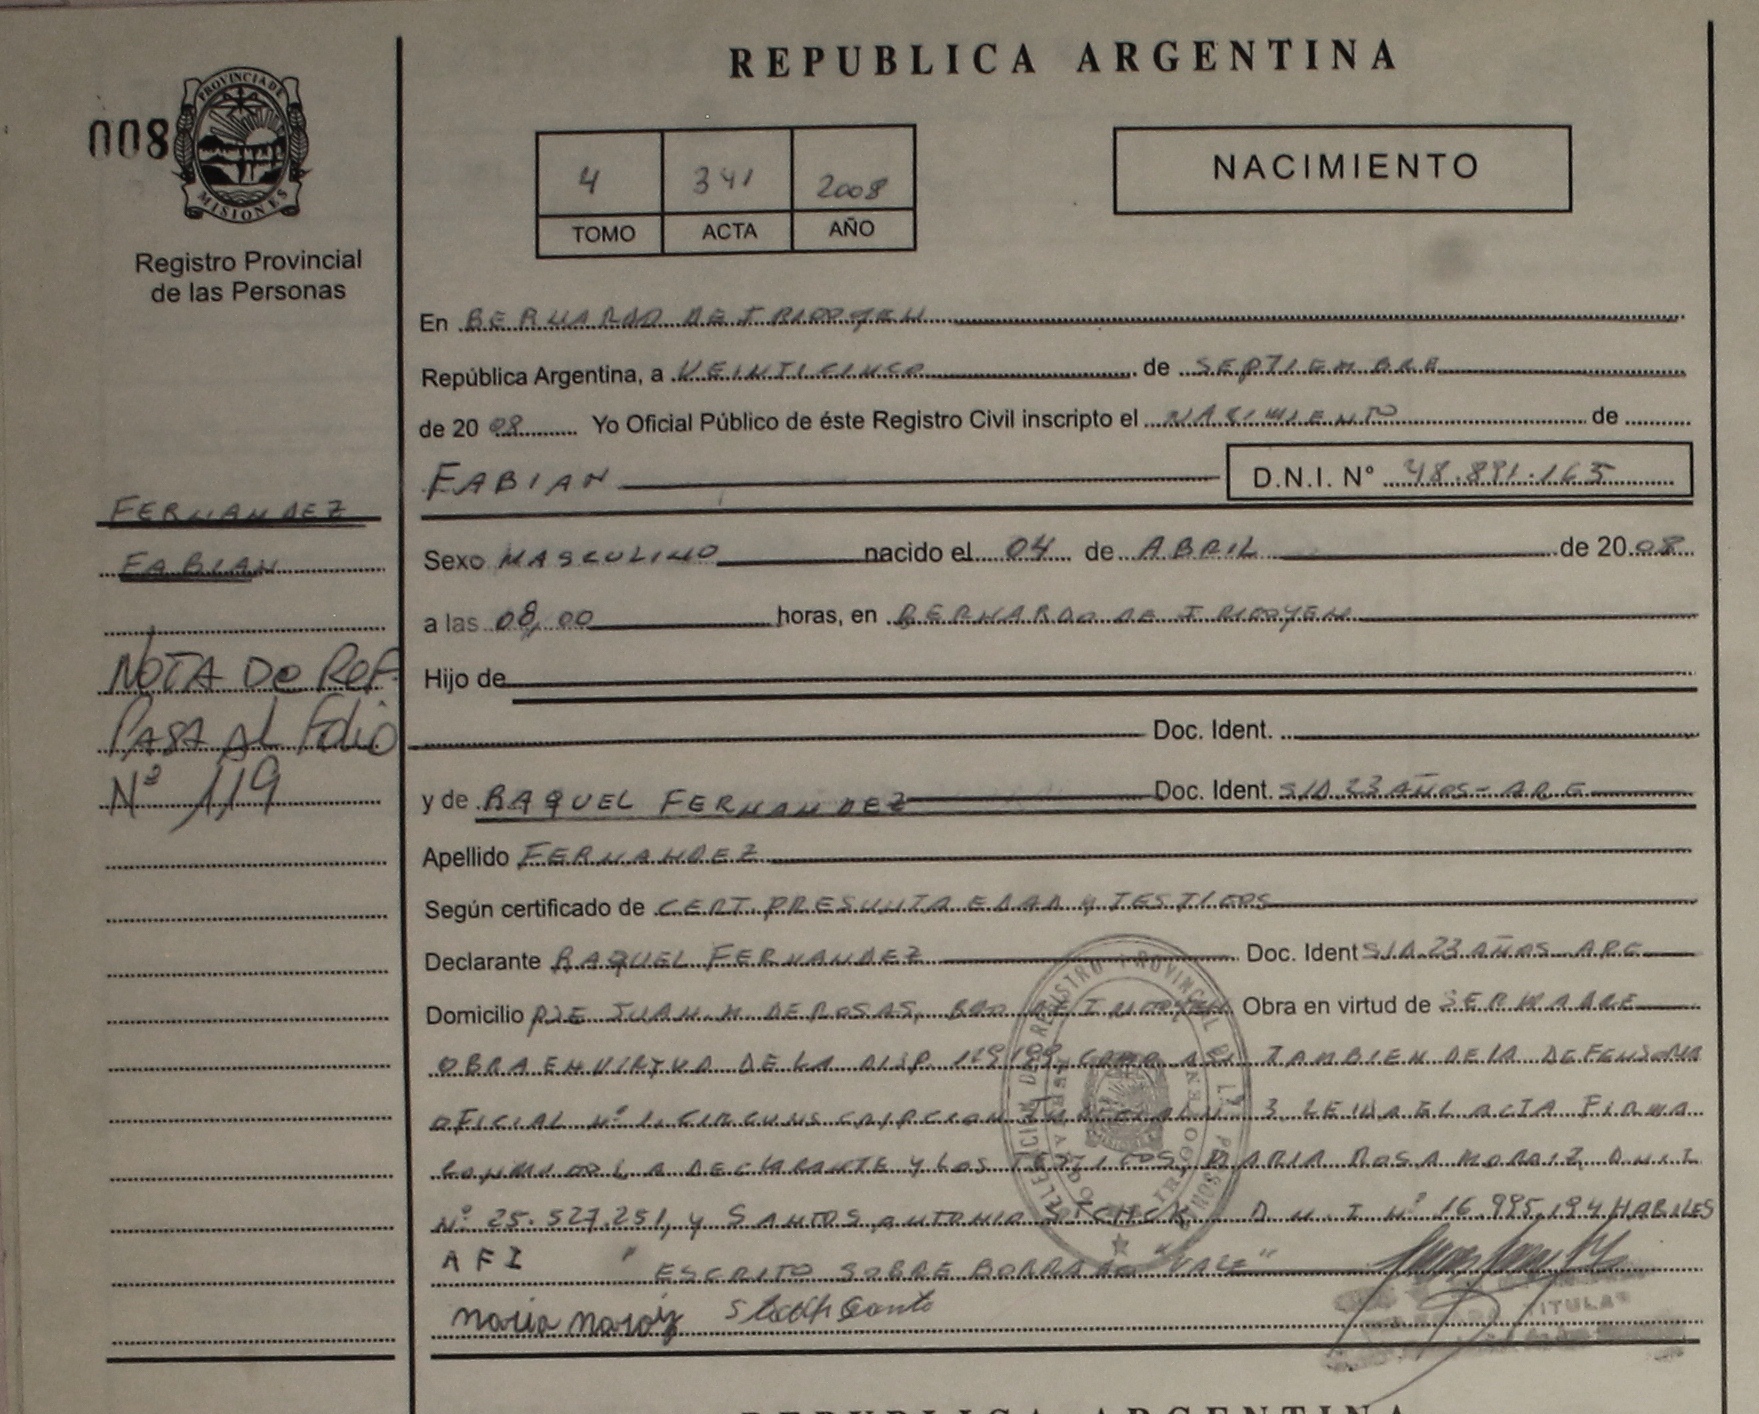 REPUBLICA ARGENTINA
008
PROVINCIA DE
MISIONES
Registro Provincial
de las Personas
4 341 2008
TOMO ACTA AÑO
NACIMIENTO
En BERNARDO DE IRIGOYEN
República Argentina, a VEINTICINCO de SEPTIEMBRE
de 20 08 Yo Oficial Público de éste Registro Civil inscripto el NACIMIENTO de
FABIAN D.N.I. Nº 48.891.165
FERNANDEZ
FABIAN
Sexo MASCULINO nacido el 04 de ABRIL de 20 08
a las 08,00 horas, en BERNARDO DE IRIGOYEN
NOTA De Ref.
Pasa Al Folio
Nº 119
Hijo de
Doc. Ident.
y de RAQUEL FERNANDEZ Doc. Ident. S/D.23 AÑOS - ARG
Apellido FERNANDEZ
Según certificado de CERT. PRESUNTA EDAD y TESTIGOS
Declarante RAQUEL FERNANDEZ Doc. Ident S/D.23 AÑOS ARG
Domicilio PJE JUAN. M. DE ROSAS, BDO DE IRIGOYEN Obra en virtud de SER MADRE
OBRA EN VIRTUD DE LA DISP. 119/99, COMO ASI TAMBIEN DE LA DEFENSORIA
OFICIAL Nº 1. CIRCUNSCRIPCION 3 LEIDA EL ACTA FIRMA
CONMIGO LA DECLARANTE y LOS TESTIGOS, MARIA ROSA D.N.I
Nº 25.527.251, y SANTOS, ANTONIO D.N.I Nº 16.995.194 HABILES
A F I " ESCRITO SOBRE BORRADO "VALE"
Maria
TITULAR
REPUBLICA ARGENTINA